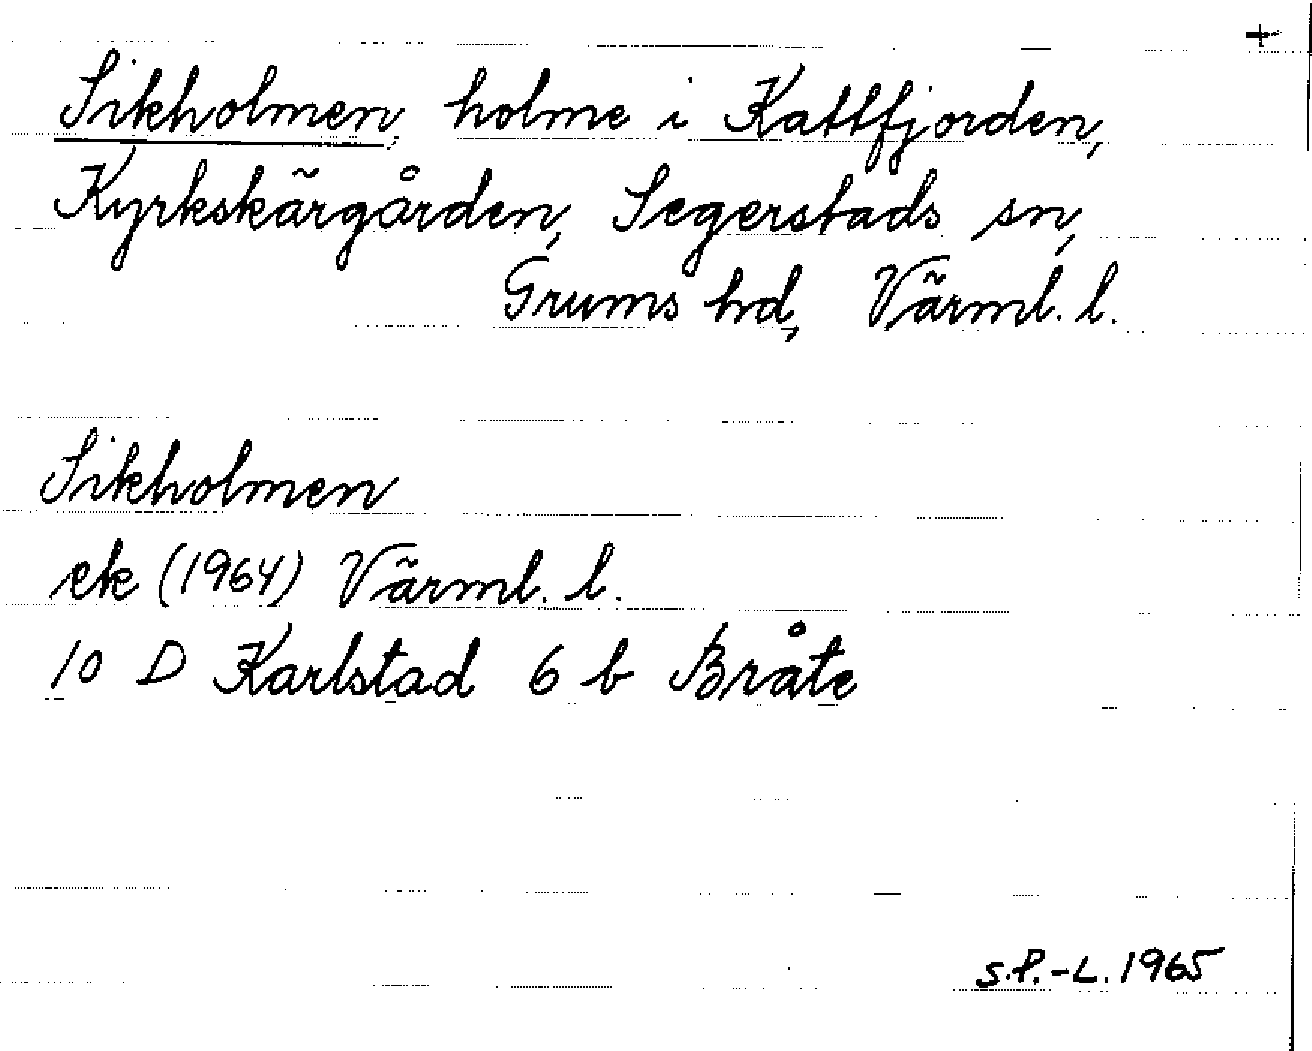 +
Sikholmen, holme i Kattfjorden,
Kyrkskärgården, Segerstads sn,
Grums hd, Värml. l.
Sikholmen
ek (1964) Värml. l.
10 D Karlstad 6 b Bråte
S.P.-L. 1965